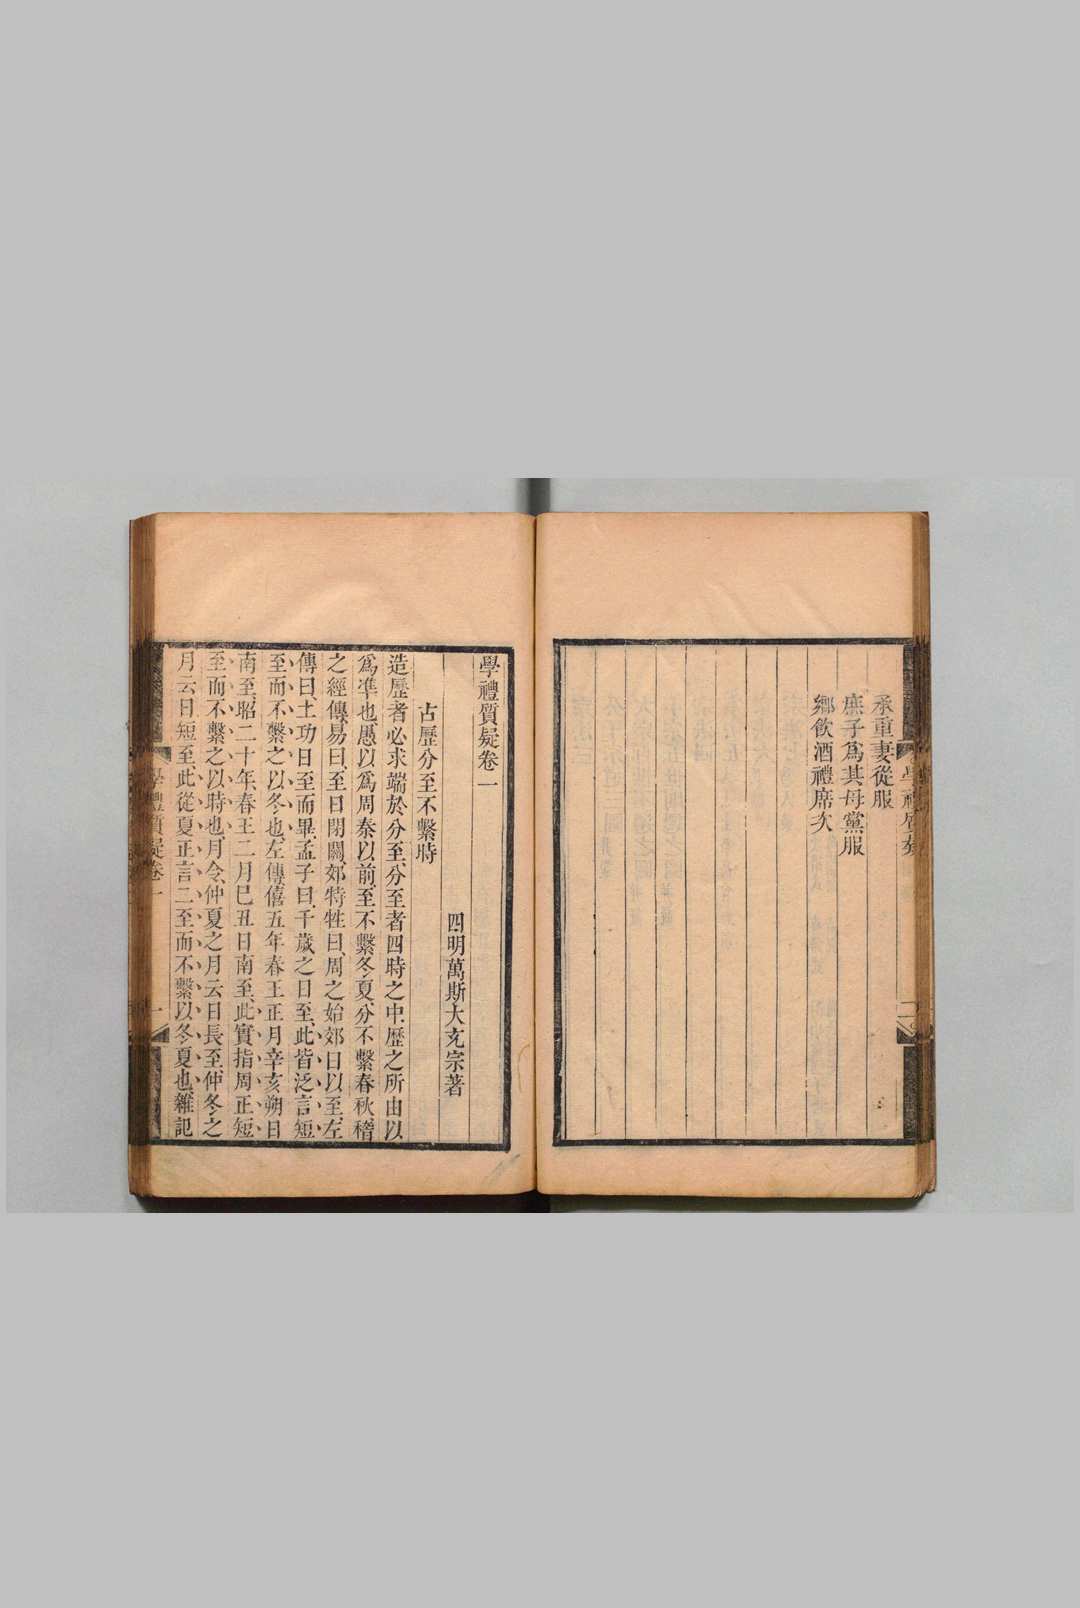 承重妻從服
庶子爲其母黨服
鄉飮酒禮席次
學禮質疑卷一
四明萬斯大充宗著
古歷分至不繫時
造歷者必求端於分至、分至者四時之中、歷之所由以
爲凖也、愚以爲周秦以前、至不繫冬夏、分不繫春秋、稽
之經傳、易曰、至日閉關、郊特牲曰、周之始郊日以至、左
傳曰、土功日至而畢、孟子曰、千歲之日至、此皆泛言短
至而不繫之以冬也、左傳僖五年春王正月辛亥朔日
南至、昭二十年、春王二月己丑日南至、此實指周正短
至而不繫之以時也、月令、仲夏之月云日長至、仲冬之
月云日短至、此從夏正言二至而不繫以冬夏也、雜記
學禮質疑卷一
一